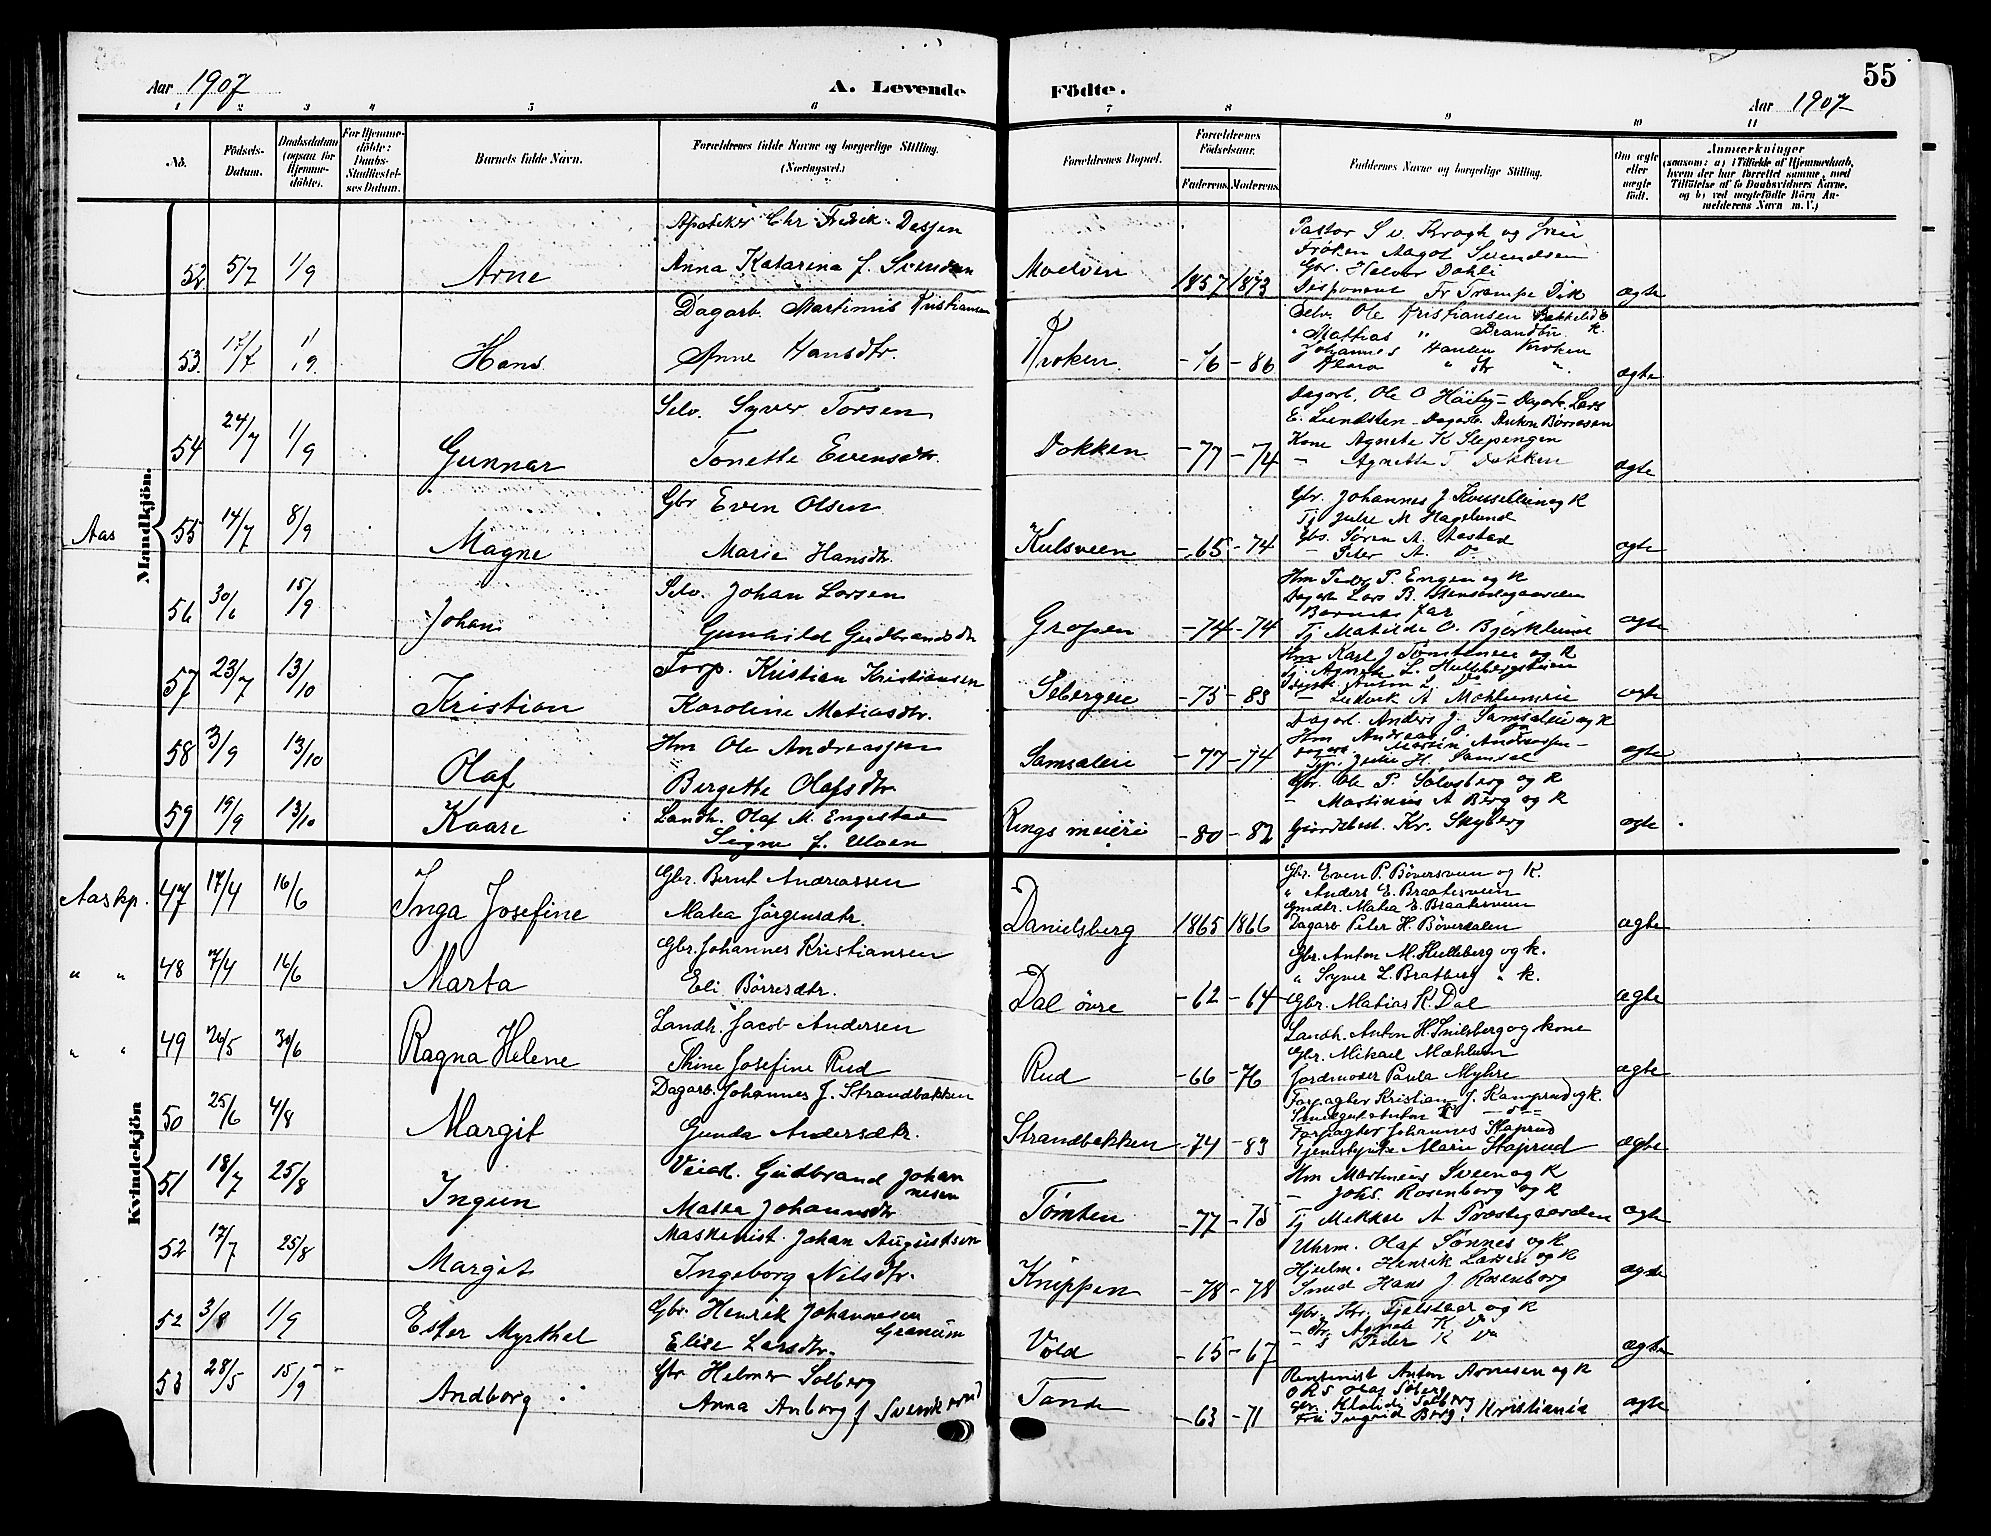 Aar 1907
A. Levende
Födte.
Aar 1907
55
1 2 3 4 5 6 7 8 9 10 11
No.
Födsels-Datum.
Daabsdatum (ogsaa for Hjemmedöbte).
For Hjemmedöbte: Daabs-Stadfæstelses Datum.
Barnets fulde Navn.
Forældrenes fulde Navne og borgerlige Stilling. (Næringsvei.)
Forældrenes Bopæl.
Forældrenes Födselsaar.
Faderens. Moderens.
Faddernes Navne og borgerlige Stilling.
Om ægte eller uægte födt.
Anmærkninger
(saasom: a) i Tilfælde af Hjemmedaab, hvem der har forrettet samme, med Tilföielse af to Daabsvidners Navne, og b) ved uægtefödte Börn Anmelderens Navn m. V.)
Mandkjön.
52 5/7 1/9 Arne
Apoteker Chr Fredik
Anna Katarina f. Svendsen
Moelven 1857 1873
Pastor S v. Krogh og Frue
Frøken Aagot Svendsen
Gbr. Halvor Dahli
Disponent Fr Trampe Dik
ægte
53 17/7 1/9 Hans
Dagarb. Martinius Kristiansen
Anne Hansdtr.
Kroken -76 -86
Selv. Ole Kristiansen
" Mathias " Brandbu K.
Johannes Hansen Kroken
ægte
54 24/7 1/9 Gunnar
Selv. Syver Torsen
Tonette Evensdtr.
Dokken -77 -74
Dagarb. Ole O Høiby - Dagarb. Lars
E. Lundsten - Dagarb Anton Børresen
Kone Agnete K Slepengen
- Agnette T Dokken
ægte
Aas 55 14/7 8/9 Magne
Gbr Even Olsen
Marie Hansdtr.
Kulsveen -65 -74
Gbr. Johannes J og K
Tj Julie M Hagelund
Gbs. Søren A. Aastad
- Peter A. Do
ægte
56 30/6 15/9 Johan
Selv. Johan Larsen
Gunhild Gudbrandsdtr
Gropen -74 -74
Hm Peder P. Engen og K
Dagarb Lars B.
Barnets far
Tj Matilde O. Bjørklund
ægte
57 23/7 13/10 Kristian
Forp. Kristian Kristiansen
Karoline Matiasdtr.
-75 -83
Hm Karl J og K
Tj. Agnete L.
Anton L Do
ægte
58 3/9 13/10 Olaf
Hm Ole Andreassen
Bergette Olafsdtr.
Samsaleie -77 -74
Dagarb. Anders J. Samsaleie og K
Hm Andreas O.
Martin Andreassen
Tj. Julie H. Samsal
ægte
59 19/9 13/10 Kaare
Landh. Olaf M. Engestad
Signe f. Ulven
Rings meieri -80 -82
Gbr. Ole P. Solvsberg og K
- Martinius A Berg og K
Gjordsbest. Kr. Skyberg
ægte
Kvindekjön
Aas kp. 47 17/4 16/6 Inga Josefine
Gbr. Bernt Andreassen
Malea Jörgensdtr.
Danielsberg 1865 1866
Gbr. Even P. Böversveen og K.
" Anders E. Braatesveen
Gmdtr. Malea E. Braatesveen
Dagarb Peter H. Böverdalen
ægte
" " 48 7/4 16/6 Marta
Gbr. Johannes Kristiansen
Eli Börresdtr.
Dal övre -62 -64
Gbr. Anton M. Hulleberg og K.
" Syver L. Bratberg " K.
Gbr. Matias K. Dal
ægte
" " 49 26/5 30/6 Ragna Helene
Landh. Jacob Andersen
Thine Josefine Rud
Rud -66 -76
Landh. Anton H. Snilsberg og kone
Gbr. Mikael Mæhlum
Jordmoder Paula Myhre
ægte
50 25/6 4/8 Margit
Dagarb. Johannes J. Strandbakken
Gunda Andersdtr.
Strandbakken -74 -83
Forpagter Kristian J. Kamprud og K.
Anton K
Forpagter Johannes Staprud
Marie Staprud
ægte
51 18/7 25/8 Ingun
Veiar. Gudbrand Johannesen
Malea Johannsdtr
Tømten -77 -75
Hm Martinius Sveen og K
- Johs. Rosenborg og K
Tj Mekkel A Præstegaarden
ægte
52 17/7 25/8 Margit
Maskinist. Johan Augustsen
Ingeborg Nilsdtr.
Knippen -78 -78
Uhrm. Olaf Sønnes og K
Hjulm. Henrik Larsen og K
Smed Hans J. Rosenborg
ægte
52 3/8 1/9 Ester Myrthel
Gbr. Henrik Johannesen Granum
Elise Larsdtr.
Vold -65 -67
Gbr. Kr. Fjelstad og K
- Agnete K Do
- Peder K Do
ægte
53 28/5 15/9 Andborg
Gbr Helmer Solberg
Anna Anborg f Svenkerud
Tande -63 -71
Rentenist Anton Arnesen og K
Olaf Solberg
Gbr. Klaudi Solberg
Fru Ingrid Berg. Kristiania
ægte